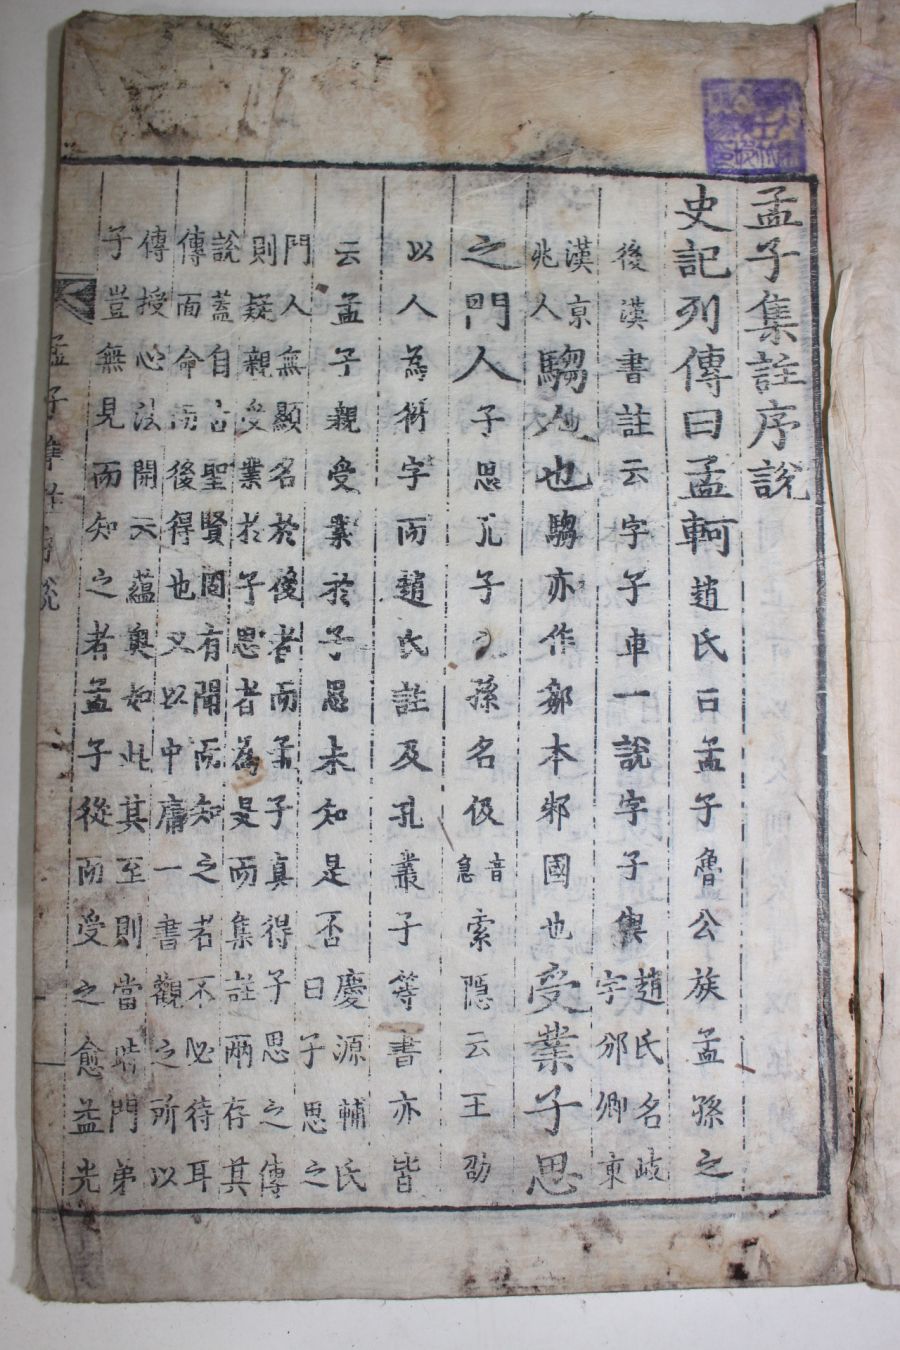 孟子集註序說
史記列傳曰孟軻趙氏曰孟子魯公族孟孫之
後漢書註云字子車一說字子輿趙氏名岐字邠卿東
漢京兆人騶人也騶亦作鄒本邾國也受業子思
之門人子思孔子之孫名伋音急索隱云王劭
以人為衍字而趙氏註及孔叢子等書亦皆
云孟子親受業於子思未知是否慶源輔氏曰子思之
門人無顯名於後者而孟子真得子思之傳
則疑親受業於子思者為是而集註兩存其
說蓋自古聖賢固有聞而知之者不必待耳
傳面命而後得也又以中庸一書觀之所以
傳授心法開示蘊奧如此其至則當時門弟
子豈無見而知之者孟子從而受之愈益光
孟子集註序說